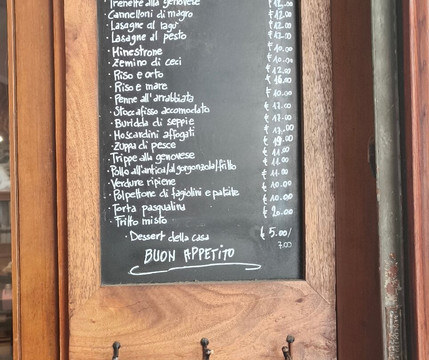 Trenette alla genovese € 12.00
Cannelloni di magro € 12.00
Lasagne al ragù € 12.00
Lasagne al pesto € 12.00
Minestrone € 10.00
Zemino di ceci € 10.00
Riso e orto € 12.00
Riso e mare € 16.00
Penne all'arrabbiata € 10.00
Stoccafisso accomodato € 17.00
Buridda di seppie € 17.00
Moscardini affogati € 17.00
Zuppa di pesce € 19.00
Trippe alla genovese € 11.00
Pollo all'antica/al gorgonzola/fritto € 11.00
Verdure ripiene € 11.00
Polpettone di fagiolini e patate € 10.00
Torta pasqualina € 10.00
Fritto misto € 20.00
Dessert della casa € 5.00/
7.00
BUON APPETITO